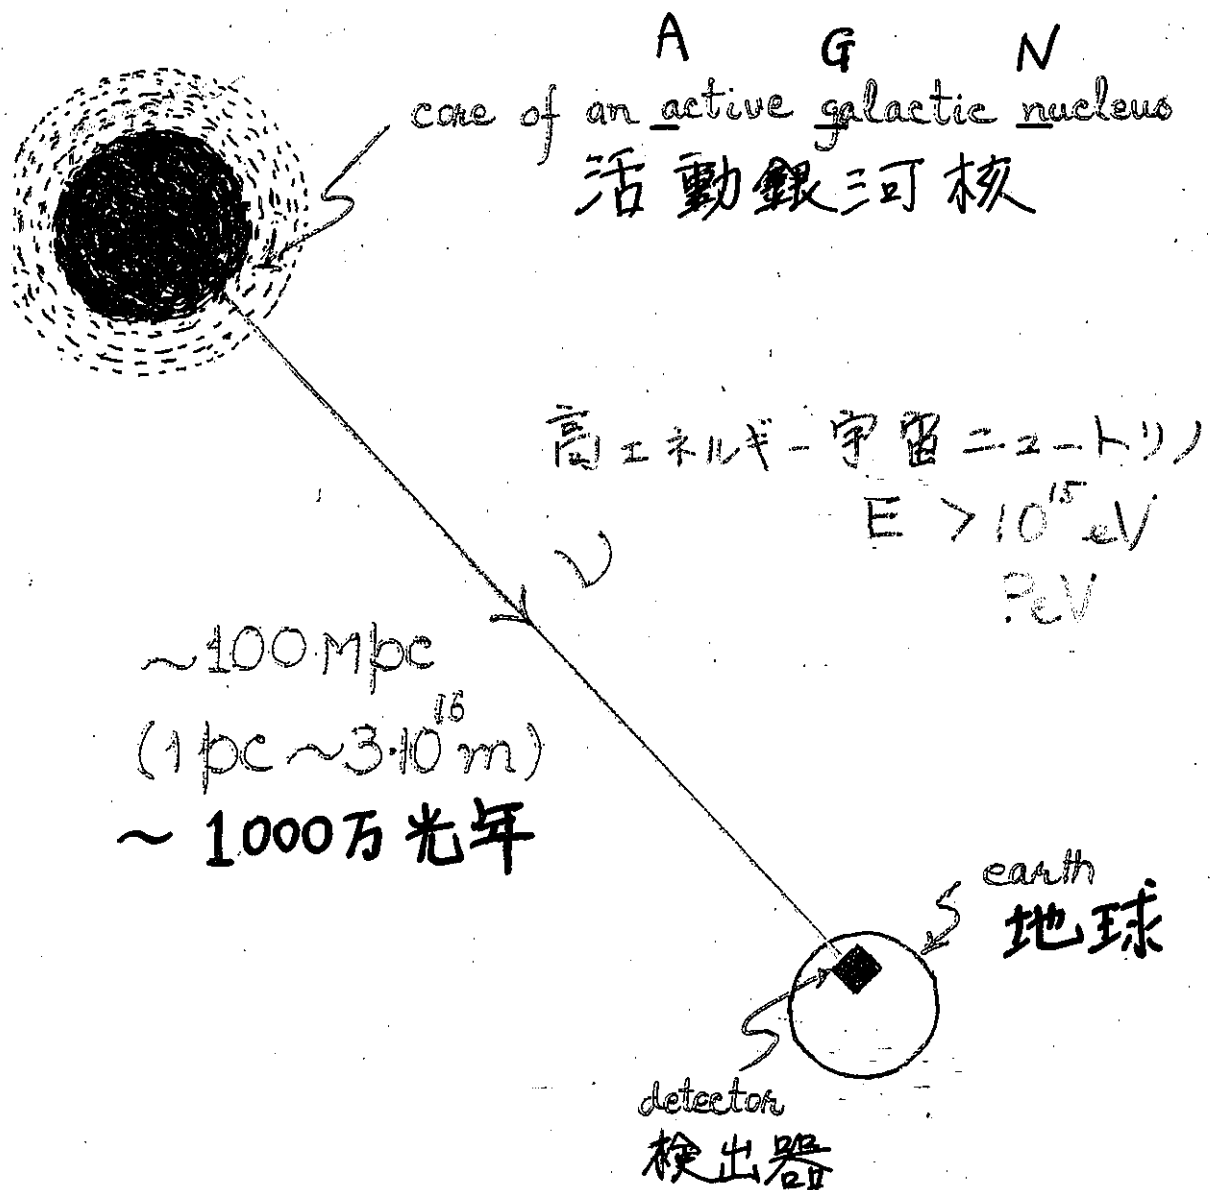 A G N
core of an active galactic nucleus
活動銀河核
高エネルギー宇宙ニュートリノ
E > 10¹⁵ eV
PeV
ν
~100 Mpc
(1 pc ~ 3·10¹⁶ m)
~ 1000万光年
earth
地球
detector
検出器